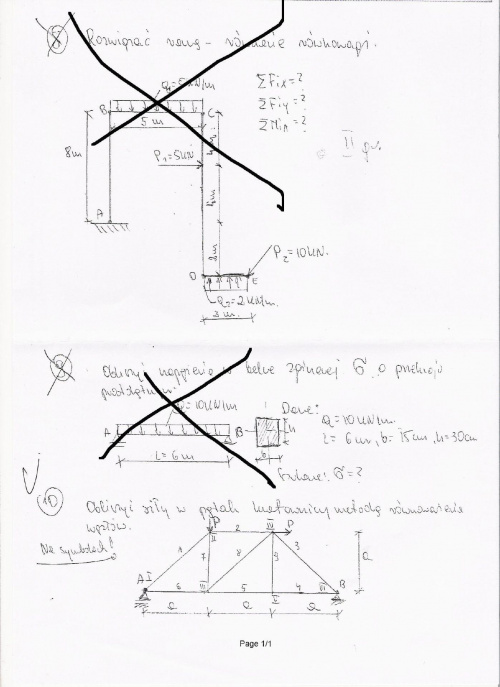 8 Rozwiązać ramę - równanie równowagi.
q1=5kN/m
B C
5 m
8m
P1=5kN
4m
4m
A
2m
ΣFix=?
ΣFiy=?
ΣMiA=?
II
P2=10kN.
D E
q2=2kN/m.
3 m.
9 Obliczyć naprężenia w belce zginanej σ o przekroju
prostokątnym.
q=10kN/m
A B
l=6m
h
b
Dane:
Q=10kN/m
l=6m, b=15cm, h=30cm
Szukane: σ=?
10 Obliczyć siły w prętach kratownicy metodą równoważenia
węzłów.
Na symbolach!
P P
II 2 IV
1 7 8 9 3 a
A I 6 III 5 V 4 VI B
a a a
Page 1/1